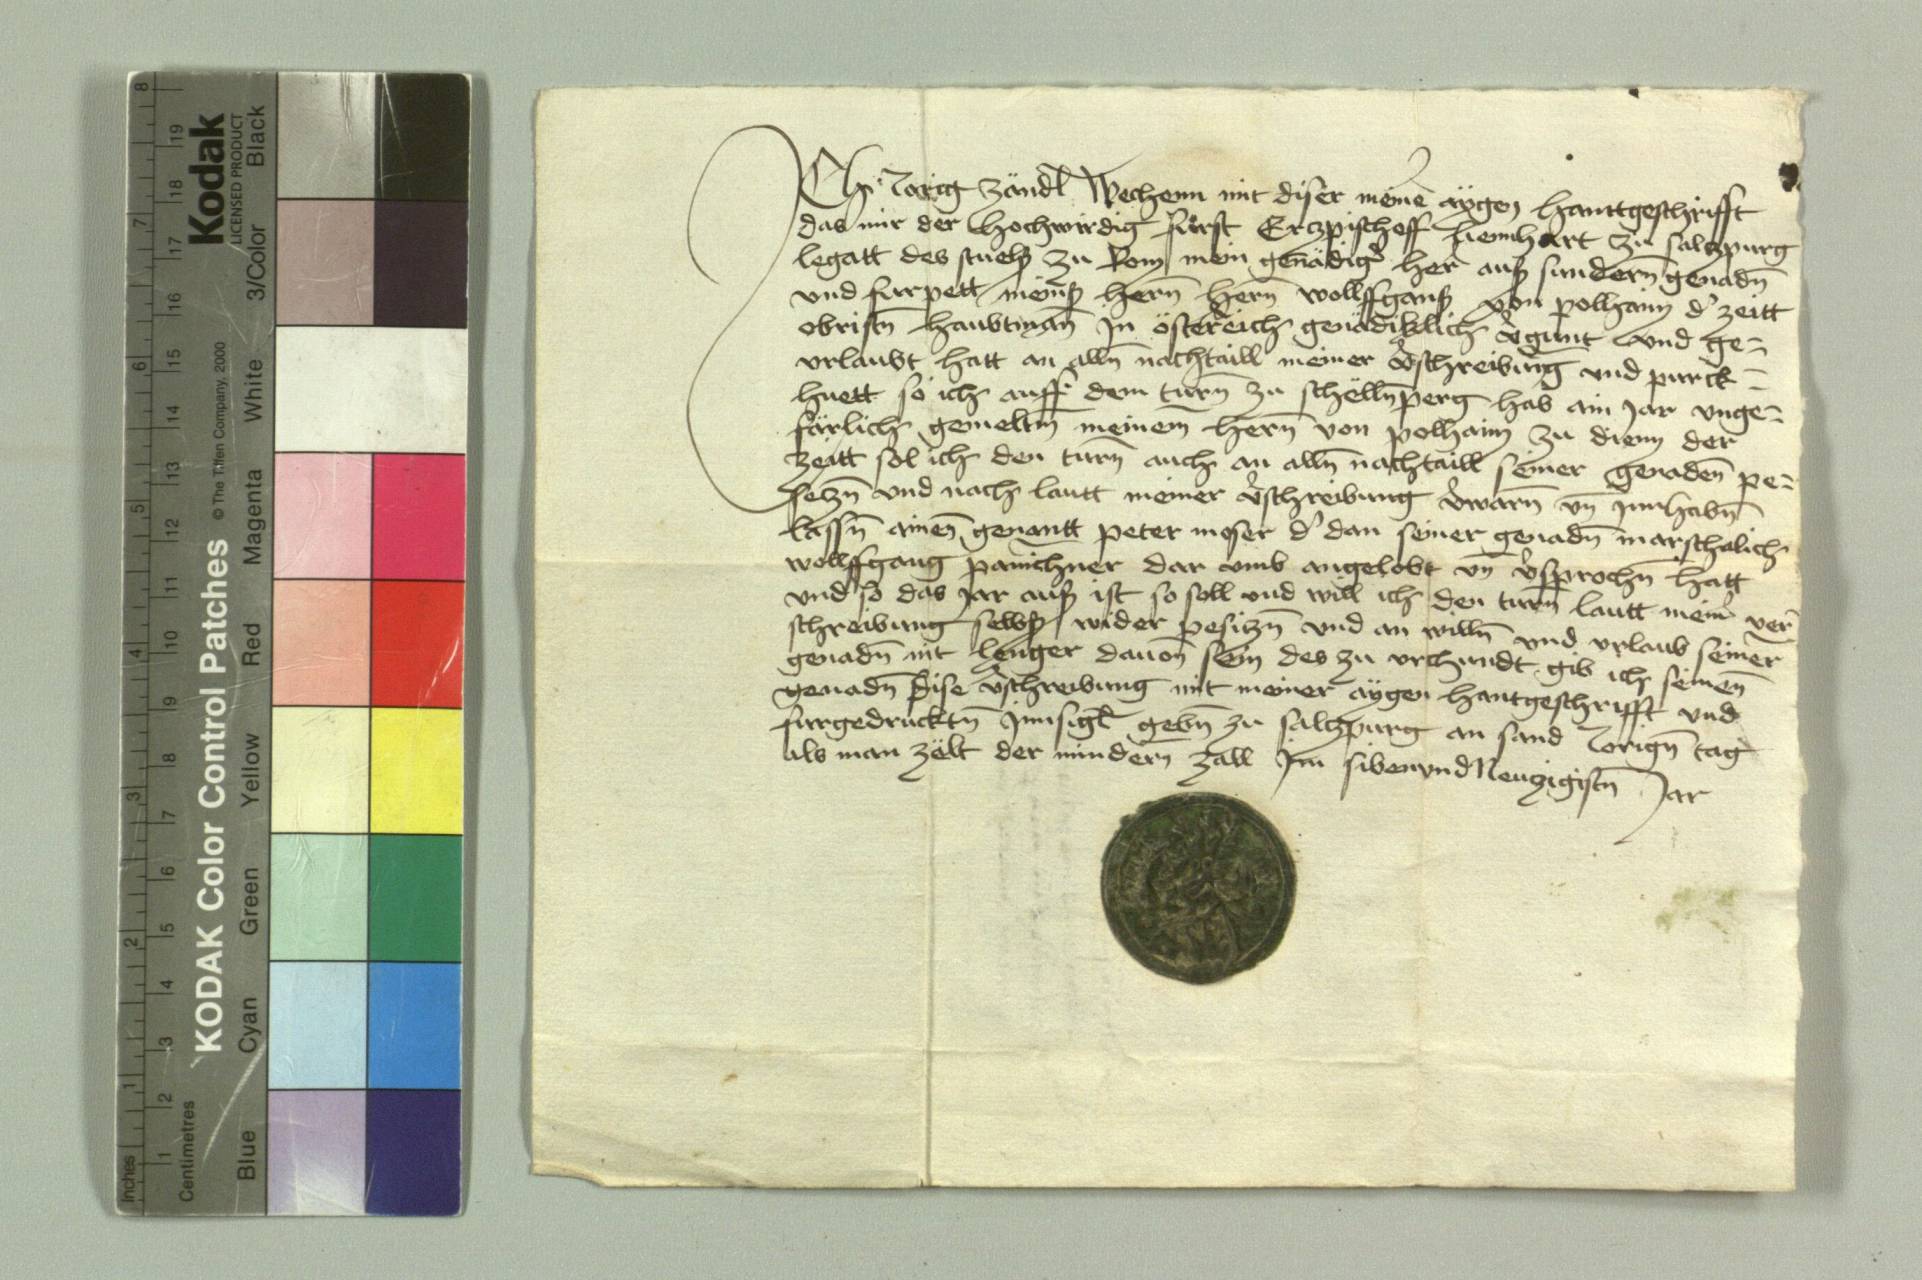 KODAK Color Control Patches
Kodak
LICENSED PRODUCT
© The Tiffen Company, 2000
Inches
Centimetres
1 2 3 4 5 6 7 8
1 2 3 4 5 6 7 8 9 10 11 12 13 14 15 16 17 18 19
Blue Cyan Green Yellow Red Magenta White 3/Color Black
Ich Jorig Zändl Wechenn mit diser meine aÿgen hanttgeschrifft
das mir der Hochwirdig fürst Erczpischoff Lienhart zu salczpurg
legatt des stuelß zu Rom mein genädig her auß sundern genadn
und furpett meinß hern hern wolffganß von polhaim d' zeitt
obristn haubtman In östereich genädiklich v̄gunt und ge-
urlaubt hatt an alln nachtaill meiner v̄schreibung und purck-
huett so ich auff dem turn zu schellnperg hab ain Jar unge-
färlich gemeltm meinem hern von polhaim zu dienn der
zeitt sol ich den turn auch an alln nachtaill seiner genaden pe-
seczn und nach lautt meiner v̄schreibung v̄warn un Innhabn
lassn ainen genantt peter moser d' dan seiner genadn marschalich
wolffgang panichner dar umb angelobt un v̄sprochn hatt
und so das Jar auß ist so soll und will ich den turn lautt meinr ver
schreibung selbß wider pesiczn und an willn und urlaub seiner
genadn nit lenger dauon sein des zu urchundt gib ich seinen
genadn dise v̄schreibung mit meiner aÿgen hantgeschrifft und
furgedrucktn Innsigl gebn zu salczpurg an sand Jorign tag
als man zelt der mindern zall Im sibenundneuczigistn Jar